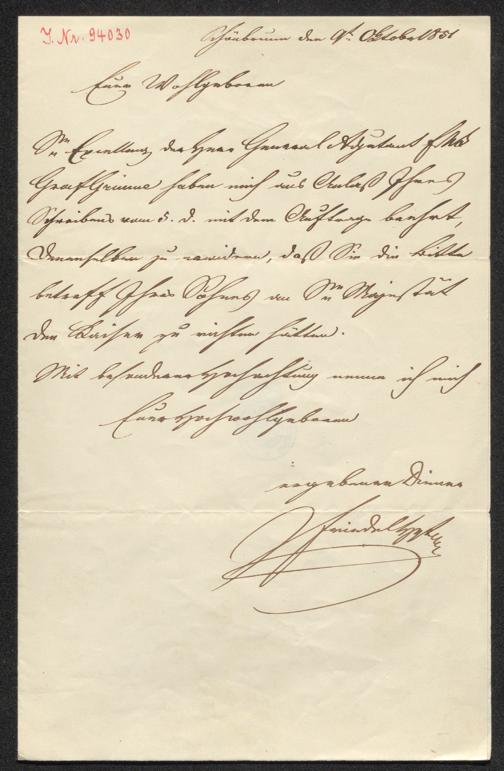 J. Nr. 94030
Schönbrunn den 9t. Oktober 851
Euer Wohlgeboren
Se Excellenz der Herr General Adjutant FML
Graf Grünne haben mich aus Anlaß Ihres
Schreibens vom 5. d. mit dem Auftrage beehrt,
Denenselben zu erwidern, daß Sie die Bitte
betreff Ihres Sohnes an Se Majestät
den Kaiser zu richten hätten.
Mit besonderer Hochachtung nenne ich mich
Euer Hochwohlgeboren
ergebener Diener
Friedel